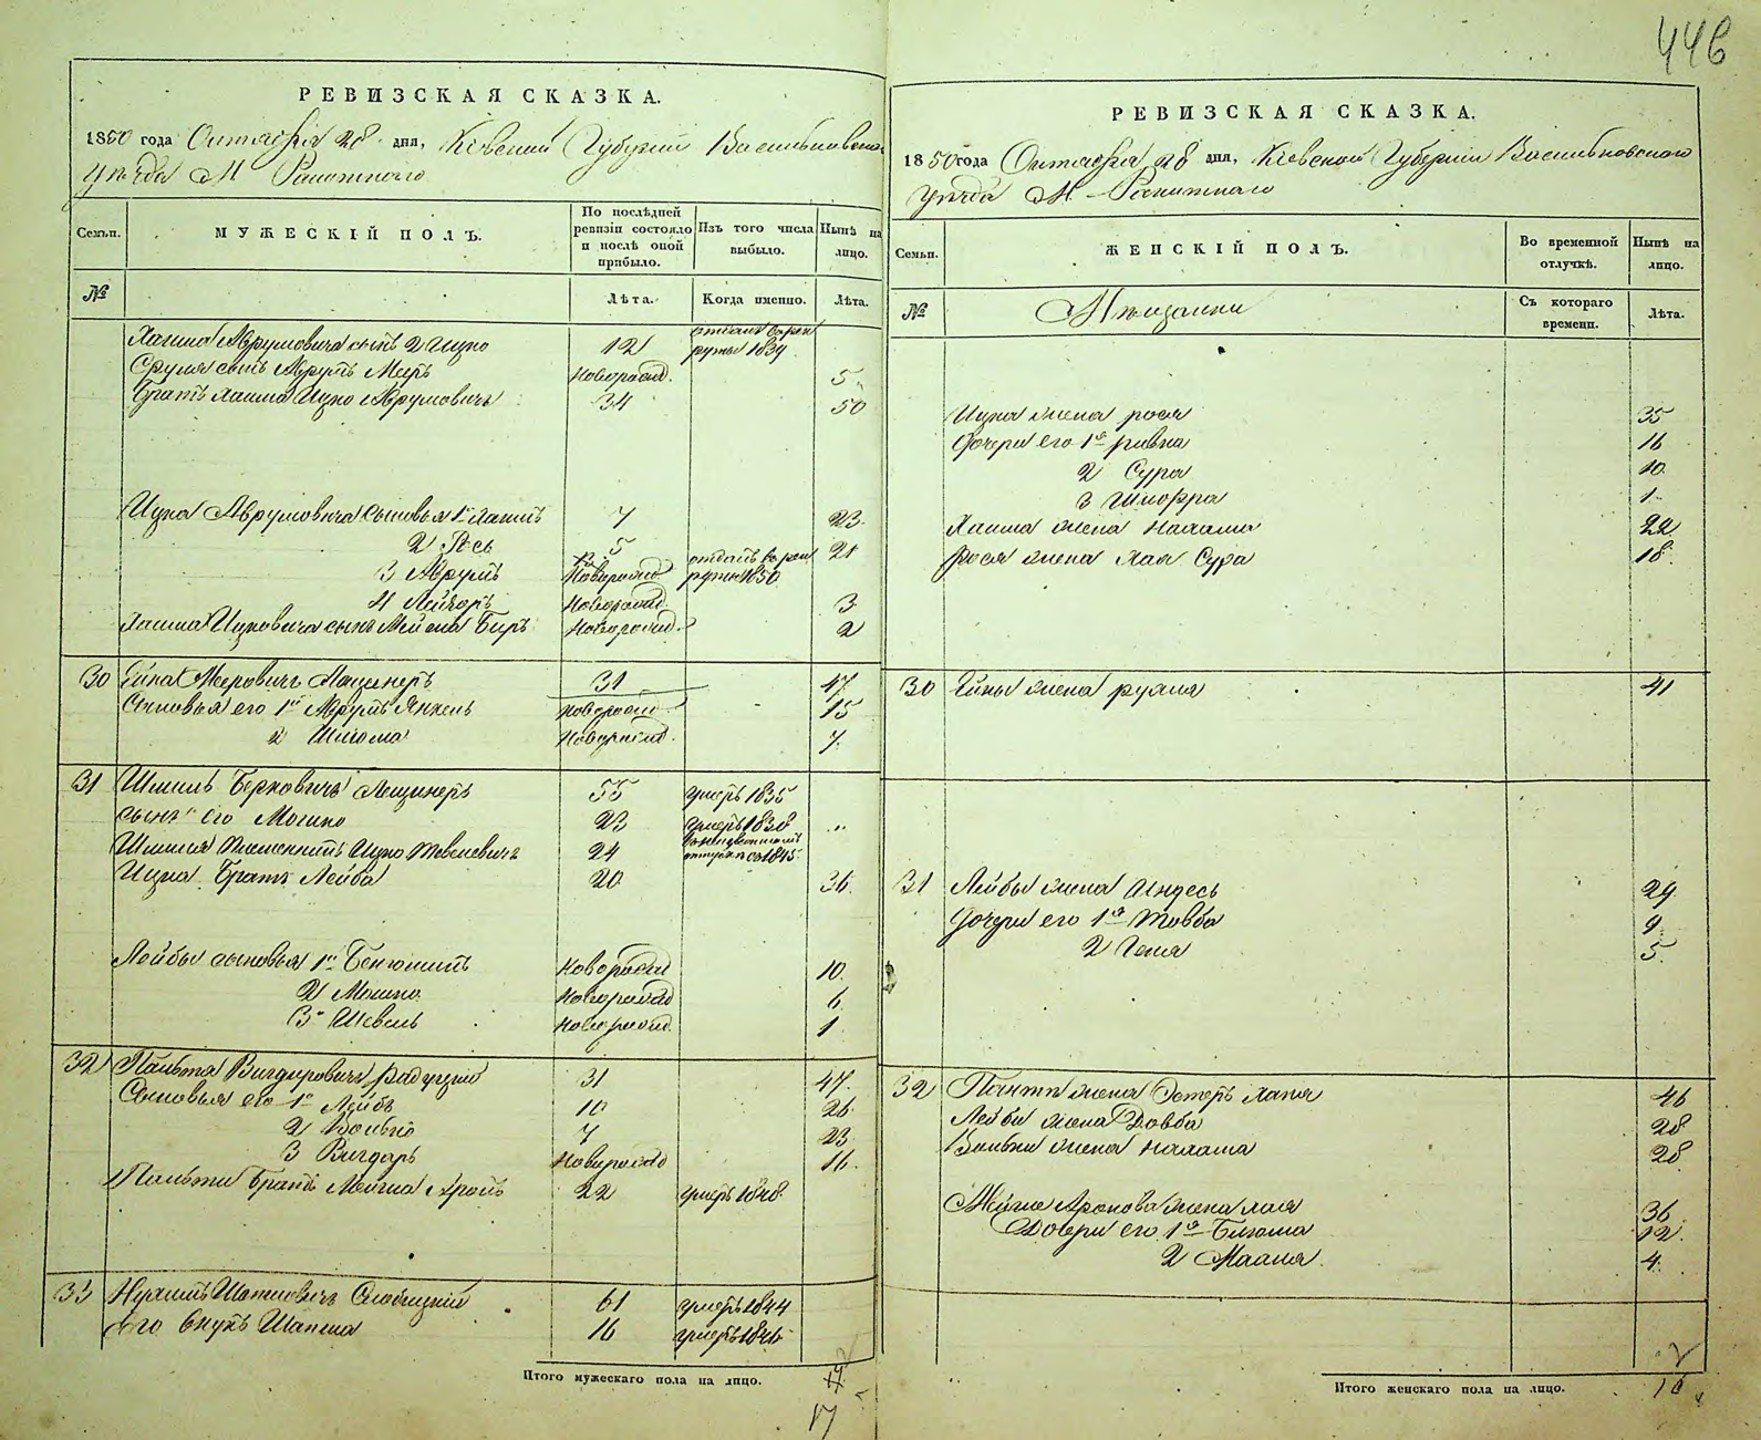 446
РЕВИЗСКАЯ СКАЗКА.
1850 года Октября 28 дня, Кіевской Губерніи Васильковскаго
уѣзда М Ракитнаго
Семьи.
МУЖЕСКІЙ ПОЛЪ.
По послѣдней ревизіи состояло и послѣ оной прибыло.
Изъ того числа выбыло.
Нынѣ на лицо.
№
Лѣта.
Когда именно.
Лѣта.
Хаима Аврумовича сынъ 2 Ицко 12 отданъ въ рекруты 1839
Сруля сынъ Аврумъ Меръ новорожд. 5
Братъ Хаима Ицко Аврумовичъ 34 50
Ицка Аврумовича сыновья 1й Хаимъ 7 23
2 Іось 5 21
3 Аврумъ новорожд отданъ въ рекруты 1850
4 Лейзоръ новорожд. 3
Хаима Ицковича сынъ Беръ новорожд. 2
30 Мееровичъ 31 47
Сыновья его 1й Аврумъ Янкель новорожд. 15
2 Шлиома новорожд. 7
31 Шмиль Берковичъ Лещинеръ 55 умеръ 1835
сынъ его Мошко 23 умеръ 1838
Шмиля племенникъ Ицко 24 1845
Ицка братъ Лейба 20 36
Лейбы сыновья 1й Бенюминъ новорожд 10
2 Мошко новорожд 6
3й Шевель новорожд. 1
32 Вигдоровичъ 31 47
Сыновья его 1й Лейба 10 26
2 Волько 7 23
3 Вигдоръ новорожд 16
братъ Аронъ 22 умеръ 1848
33 Слободзкій 61 умеръ 1844
Его внукъ Шапша 16 умеръ 1846
Итого мужескаго пола на лицо.
17
РЕВИЗСКАЯ СКАЗКА.
1850 года Октября 28 дня, Кіевской Губерніи Васильковскаго
уѣзда М. Ракитнаго
Семьи.
ЖЕНСКІЙ ПОЛЪ.
Во временной отлучкѣ.
Нынѣ на лицо.
№
Мѣщанки
Съ котораго времени.
Лѣта.
Ицка жена рося 35
Дочери его 1я ривка 16
2 Сура 10
3 Шпофра 1
Хаима жена Нахама 22
Іося жена Хая Сура 18
30 жена рухля 41
31 Лейбы жена Гиндесь 29
Дочери его 1я Товба 9
2 Геня 5
32 жена Эстеръ Хана 46
Лейбы жена Довба 28
Вольки жена Нахама 28
Аронова жена хая 36
Дочери его 1я 12
2 4
Итого женскаго пола на лицо.
16